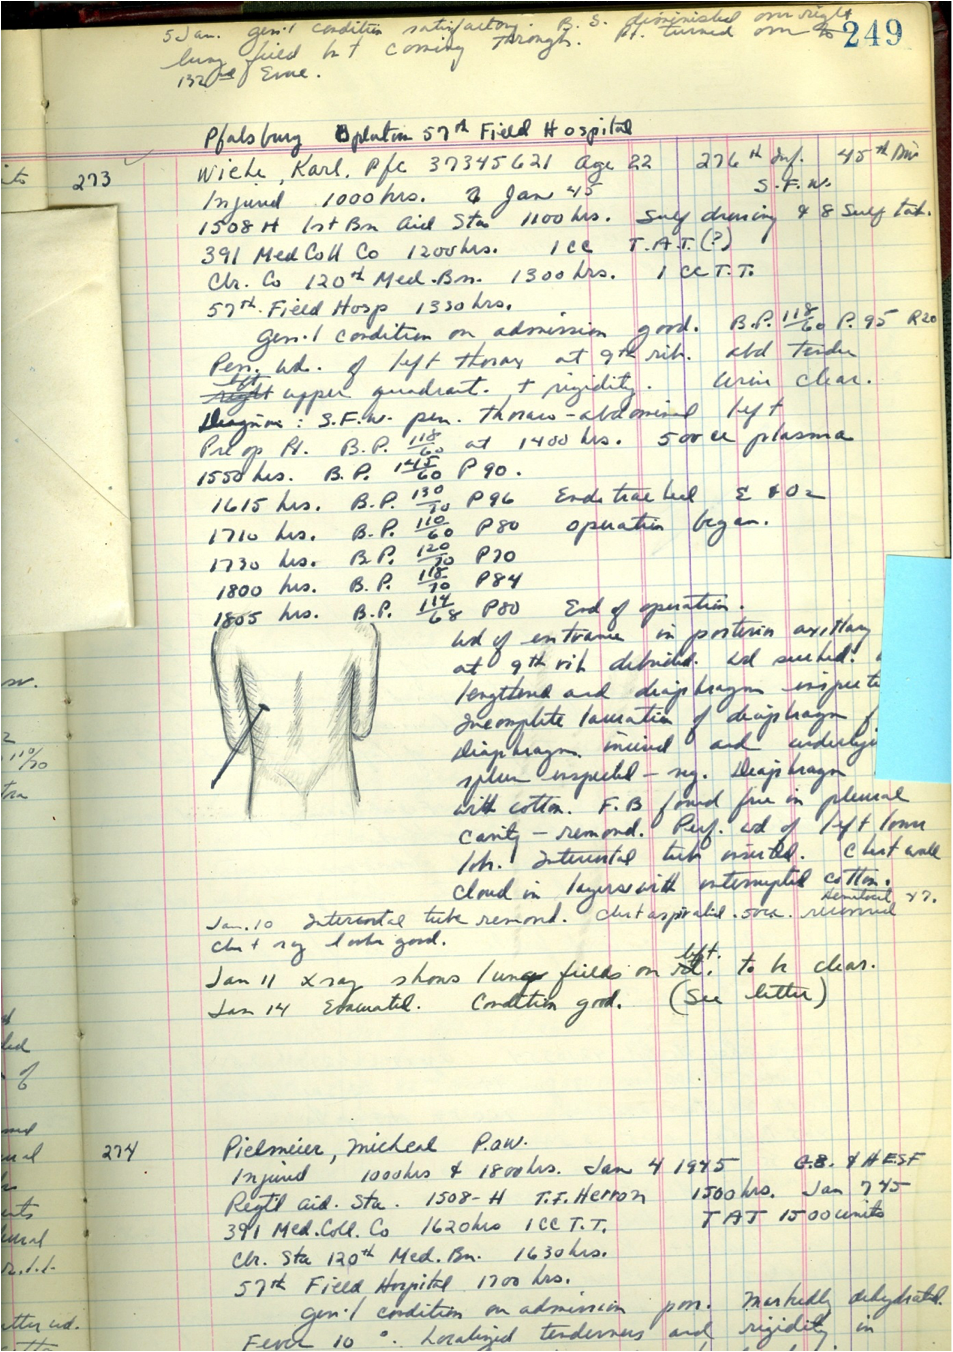 249
5 Jan. gen'l condition satisfactory. B.S. diminished over right
lung field but coming through. Pt. turned over to
132nd Evac.
Pfalsburg Platoon 57th Field Hospital
273 Wiehe, Karl, Pfc 37345621 Age 22 276th Inf. 45th Div
Injured 1000 hrs. Jan 45 S.F.W.
1508 H 1st Bn Aid Sta 1100 hrs. Sulf dressing & 8 Sulf tab.
391 Med Coll Co 1200 hrs. 1 cc T.A.T. (?)
Clr. Co 120th Med. Bn. 1300 hrs. 1 cc T.T.
57th Field Hosp 1330 hrs.
gen'l condition on admission good. B.P. 118/60 P. 95 R20
Pen. wd. of left thorax at 9th rib. abd tender
left
right upper quadrant. + rigidity. Urin clear.
Diagnosis: S.F.W. pen. thoraco-abdominal left
Pre op Rt. B.P. 118/60 at 1400 hrs. 500 cc plasma
1550 hrs. B.P. 145/60 P 90.
1615 hrs. B.P. 130/70 P96 Endotracheal E & O2
1710 hrs. B.P. 110/60 P80 operation began.
1730 hrs. B.P. 120/70 P70
1800 hrs. B.P. 118/70 P84
1805 hrs. B.P. 114/68 P80 End of operation.
Wd of entrance in posterior axillary
at 9th rib debrided. Wd sucked.
lengthened and diaphragm inspecte
Incomplete laceration of diaphragm
Diaphragm incised and underlyi
spleen inspected - neg. Diaphragm
with cotton. F.B found free in pleural
cavity - removed. Perf. wd of left lower
lobe. Intercostal tube inserted. Chest wall
closed in layers with interrupted cotton.
Jan. 10 Intercostal tube removed. Chest aspirated. 50cc. removed Hematocrit 47.
chest ray looks good.
Jan 11 x ray shows lung fields on left rt. to be clear.
Jan 14 Evacuated. Condition good. (See letter)
274 Pielmeier, Micheal P.O.W.
Injured 1000hrs & 1800hrs. Jan 4 1945 G.B. & HESF
Reg'tl aid. Sta. 1508-H T.F. Herron 1500hrs. Jan 7 45
391 Med. Coll. Co 1620hrs 1 CC T.T. TAT 1500 units
Clr. Sta 120th Med. Bn. 1630hrs.
57th Field Hospital 1700 hrs.
gen'l condition on admission poor. Markedly dehydrated.
Fever 10 °. Localized tenderness and rigidity in